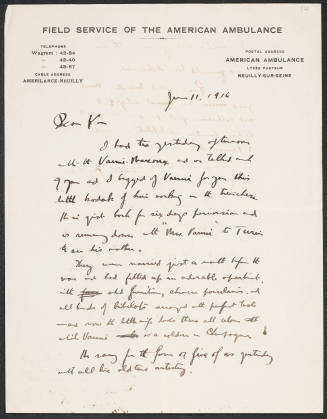 FIELD SERVICE OF THE AMERICAN AMBULANCE
TELEPHONE
Wagram: 42-54
42-40
42-57
CABLE ADDRESS
AMBULANCE-NEUILLY
POSTAL ADDRESS
AMERICAN AMBULANCE
LYCÉE PASTEUR
NEUILLY-SUR-SEINE
June 11, 1916
Dear
I had tea yesterday afternoon
with the and we talked much
of you and I begged of for you this
little of him working in the trenches.
He is just back for six days permission and
is running down with to Turin
to see his mother.
They were married just a month before the
war and had fitted up an adorable apartment,
with old furniture, chinese porcelains, and
all kinds of bibelots arranged with perfect taste
and now the little wife looks there all alone
while is a soldier in Champagne.
He sang for the four or five of us yesterday
with all his old time artistry.